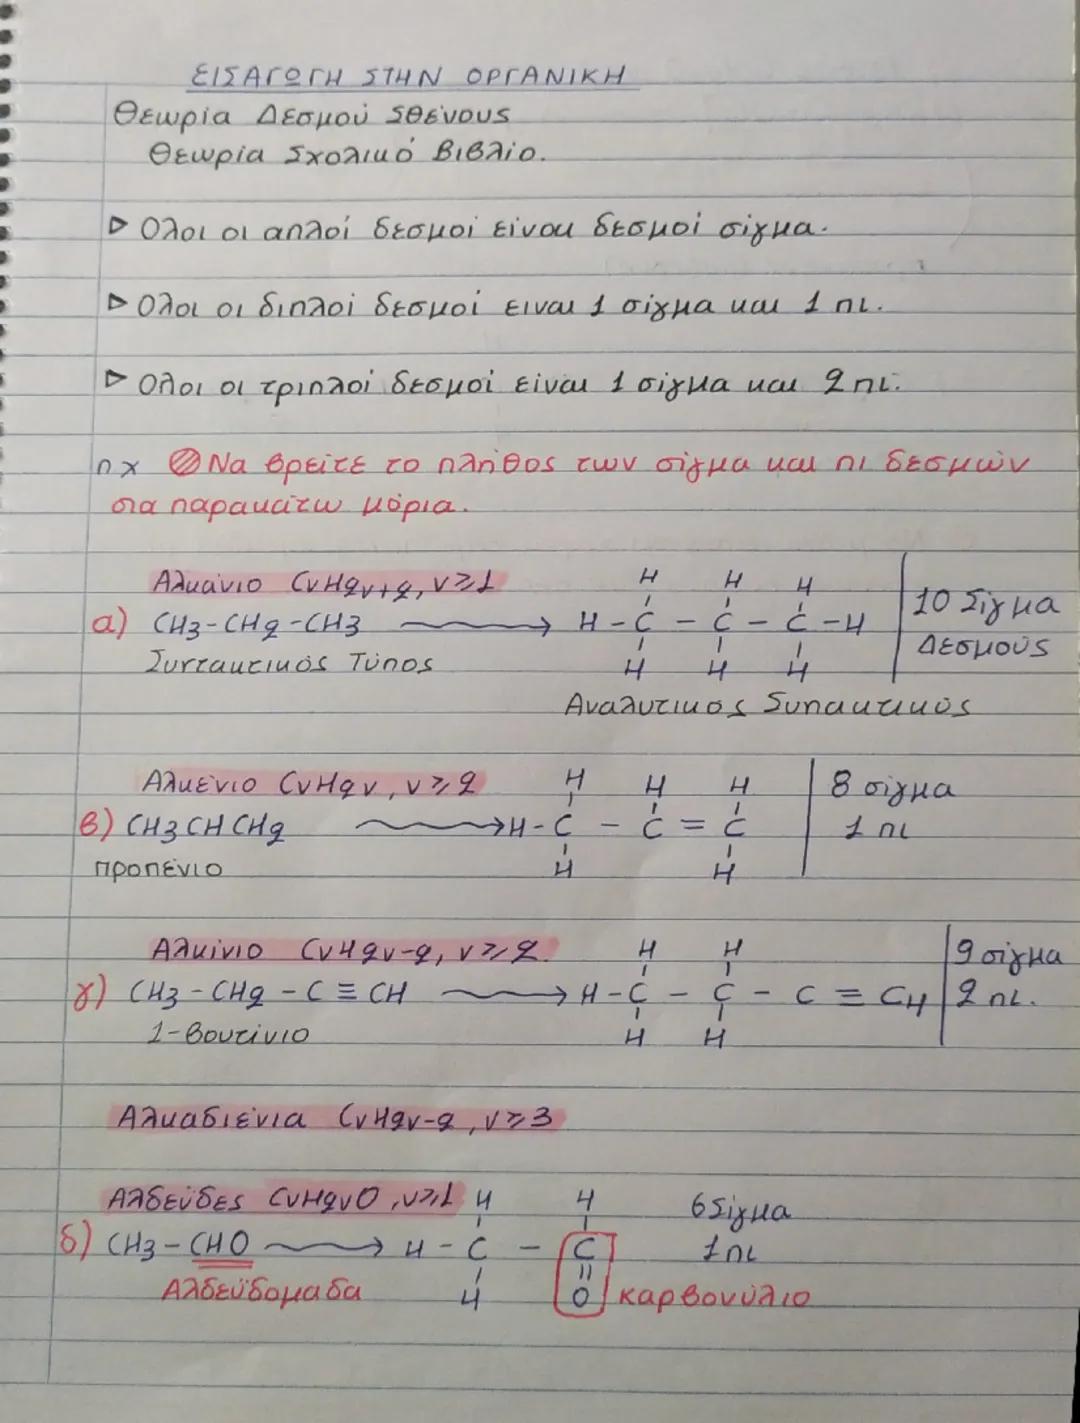 ΕΙΣΑΓΩΓΗ ΣΤΗΝ ΟΡΓΑΝΙΚΗ
Θεωρία Δεσμού Σθένους
Θεωρία Σχολικό Βιβλίο.
▷ Ολοι οι απλοί δεσμοί είναι δεσμοί σίγμα.
▷ Ολοι οι διπλοί δεσμοί ειναι 1 σίγμα και 1 πι.
▷ Ολοι οι τριπλοί δεσμοί είναι 1 σίγμα και 2 πι.
πχ Να βρείτε το πλήθος των σίγμα και πι δεσμών
στα παρακάτω μόρια.
Αλκάνιο CνH2ν+2, ν≥1
H H H
α) CH3-CH2-CH3 → H-C-C-C-H
10 Σίγμα
Δεσμούς
H H H
Συντακτικός Τύπος
Αναλυτικός Συντακτικός
Αλκένιο CνH2ν, ν≥2
H H H
8 σίγμα
β) CH3CHCH2 → H-C-C=C
1 πι
προπένιο
H H
Αλκίνιο CνH2ν-2, ν≥2.
H H
9 σίγμα
γ) CH3-CH2-C≡CH → H-C-C-C≡CH
2 πι.
1-βουτίνιο
H H
Αλκαδιένια CνH2ν-2, ν≥3
Αλδεύδες CνH2νO, ν≥1
H H
6 Σίγμα
δ) CH3-CHO → H-C-C
1 πι
Αλδεϋδομάδα
H
=
O
καρβονύλιο